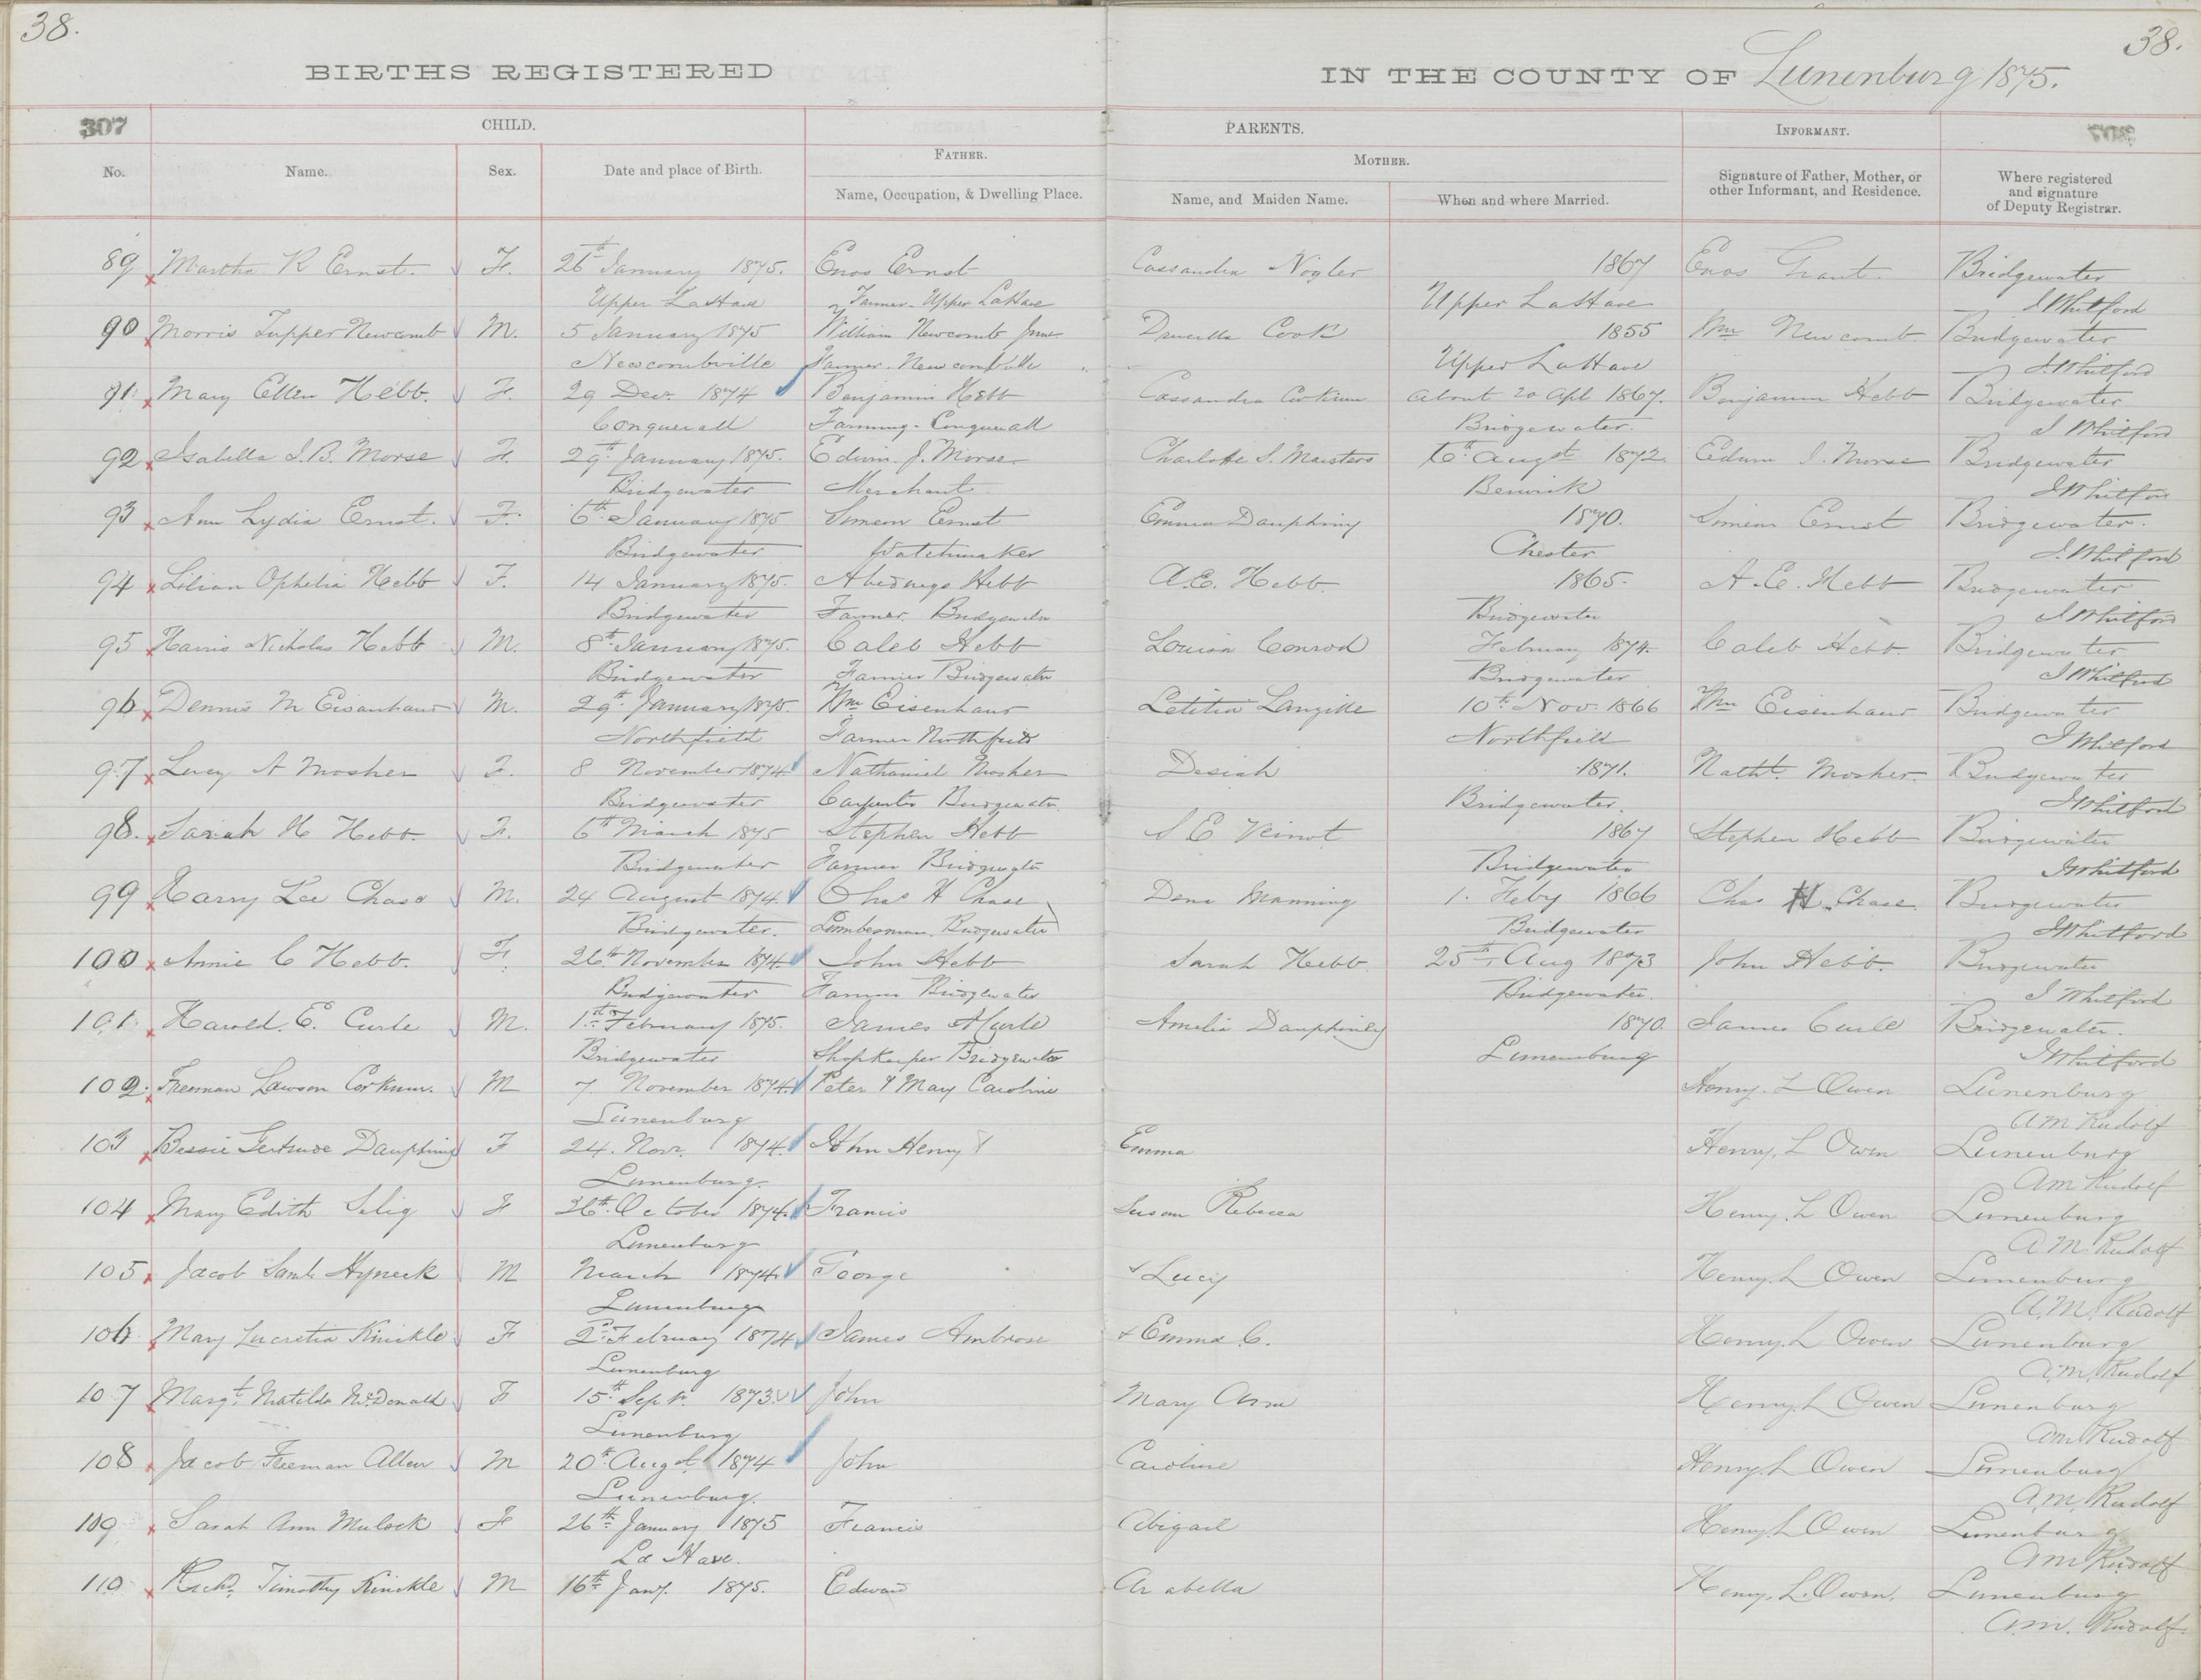 38.
38.
BIRTHS REGISTERED
IN THE COUNTY OF Lunenburg 1875.
307
CHILD.
PARENTS.
INFORMANT.
No.
Name.
Sex.
Date and place of Birth.
FATHER.
Name, Occupation, & Dwelling Place.
MOTHER.
Name, and Maiden Name.
When and where Married.
Signature of Father, Mother, or
other Informant, and Residence.
Where registered
and signature
of Deputy Registrar.
89 Martha R Ernst. F. 26th January 1875. Enos Ernst Cassandra Nogler 1867 Enos Bridgewater
Upper LaHave Farmer - Upper LaHave Upper LaHave J Whitford
90 Morris Tupper Newcomb M. 5 January 1875 William Newcomb Drucilla Cook 1855 Wm Newcomb Bridgewater
Newcombville Farmer. Newcombville Upper LaHave J Whitford
91 Mary Ellen Hebb. F. 29 Decr. 1874 Benjamin Hebb Cassandra about 20 Apl 1867. Benjamin Hebb Bridgewater
Conquerall Farming - Conquerall Bridgewater. J Whitford
92 Isabella J. B. Morse F. 29th January 1875. Edwin. J. Morse Charlotte S. Masters 6th Augst 1872 Edwin J. Morse Bridgewater
Bridgewater Merchant Berwick J Whitford
93 Ann Lydia Ernst. F. 6th January 1875 Simeon Ernst Emma Dauphiny 1870. Simeon Ernst Bridgewater.
Bridgewater Watchmaker Chester J. Whitford
94 Lilian Ophelia Hebb F. 14 January 1875. Abednego Hebb A.E. Hebb 1865. A. E. Hebb Bridgewater
Bridgewater Farmer. Bridgewater Bridgewater J Whitford
95 Harris Nicholas Hebb M. 8th January 1875. Caleb Hebb Louisa Conrod February 1874. Caleb Hebb. Bridgewater
Bridgewater Farmer Bridgewater Bridgewater J Whitford
96 Dennis M Eisenhaur M. 29th January 1875. Wm Eisenhaur Letitia Langille 10th Nov. 1866 Wm Eisenhaur Bridgewater
Northfield Farmer Northfield Northfield J Whitford
97 Lucy A Mosher F. 8 November 1874 Nathaniel Mosher Desiah 1871. Nathl. Mosher. Bridgewater
Bridgewater Carpenter Bridgewater. Bridgewater. J Whitford
98. Sarah H Hebb. F. 6th March 1875 Stephen Hebb S E Veinot 1867 Stephen Hebb Bridgewater
Bridgewater Farmer Bridgewater Bridgewater J Whitford
99 Harry Lee Chase M. 24 August 1874. Chas H Chase Dena Manning 1. Feby 1866 Chas H. Chase. Bridgewater
Bridgewater. Lumberman. Bridgewater Bridgewater J Whitford
100 Annie C Hebb. F. 26th November 1874. John Hebb Sarah Hebb 25th Aug 1873 John Hebb. Bridgewater
Bridgewater Farmer Bridgewater Bridgewater. J Whitford
101 Harold. E. Curle M. 1st February 1875. James A Curle Amelia Dauphiney 1870. James Curle Bridgewater.
Bridgewater Shopkeeper Bridgewater Lunenburg J Whitford
102. Freeman Lawson Corkum. M 7. November 1874. Peter & Mary Caroline Henry. L Owen Lunenburg
Lunenburg A M Rudolf
103 Bessie Gertrude Dauphiny F 24. Novr. 1874. John Henry & Emma Henry. L Owen Lunenburg
Lunenburg. A M Rudolf
104 Mary Edith Selig F October 1874. Francis Susan Rebecca Henry. L Owen Lunenburg
Lunenburg A. M. Rudolf
105. Jacob Saml. Hyneck M March 1874. George & Lucy Henry. L Owen Lunenburg
Lunenburg A. M. Rudolf
106 Mary Lucretia Knickle F 2d February 1874 James Ambrose & Emma C. Henry. L Owen Lunenburg
Lunenburg A. M. Rudolf
107 Margt. Matilda McDonald F 15th Sept. 1873. John Mary Ann Henry. L Owen Lunenburg
Lunenburg A M Rudolf
108 Jacob Freeman Allen M 20th Augst. 1874 John Caroline Henry. L Owen Lunenburg
Lunenburg. A. M. Rudolf
109 Sarah Ann Mulock F 26th January 1875 Francis Abigail Henry. L Owen Lunenburg
La Have. A M Rudolf
110 Richd. Timothy Knickle M 16th Jany. 1875. Edward Arabella Henry. L. Owen. Lunenburg
A. M. Rudolf.